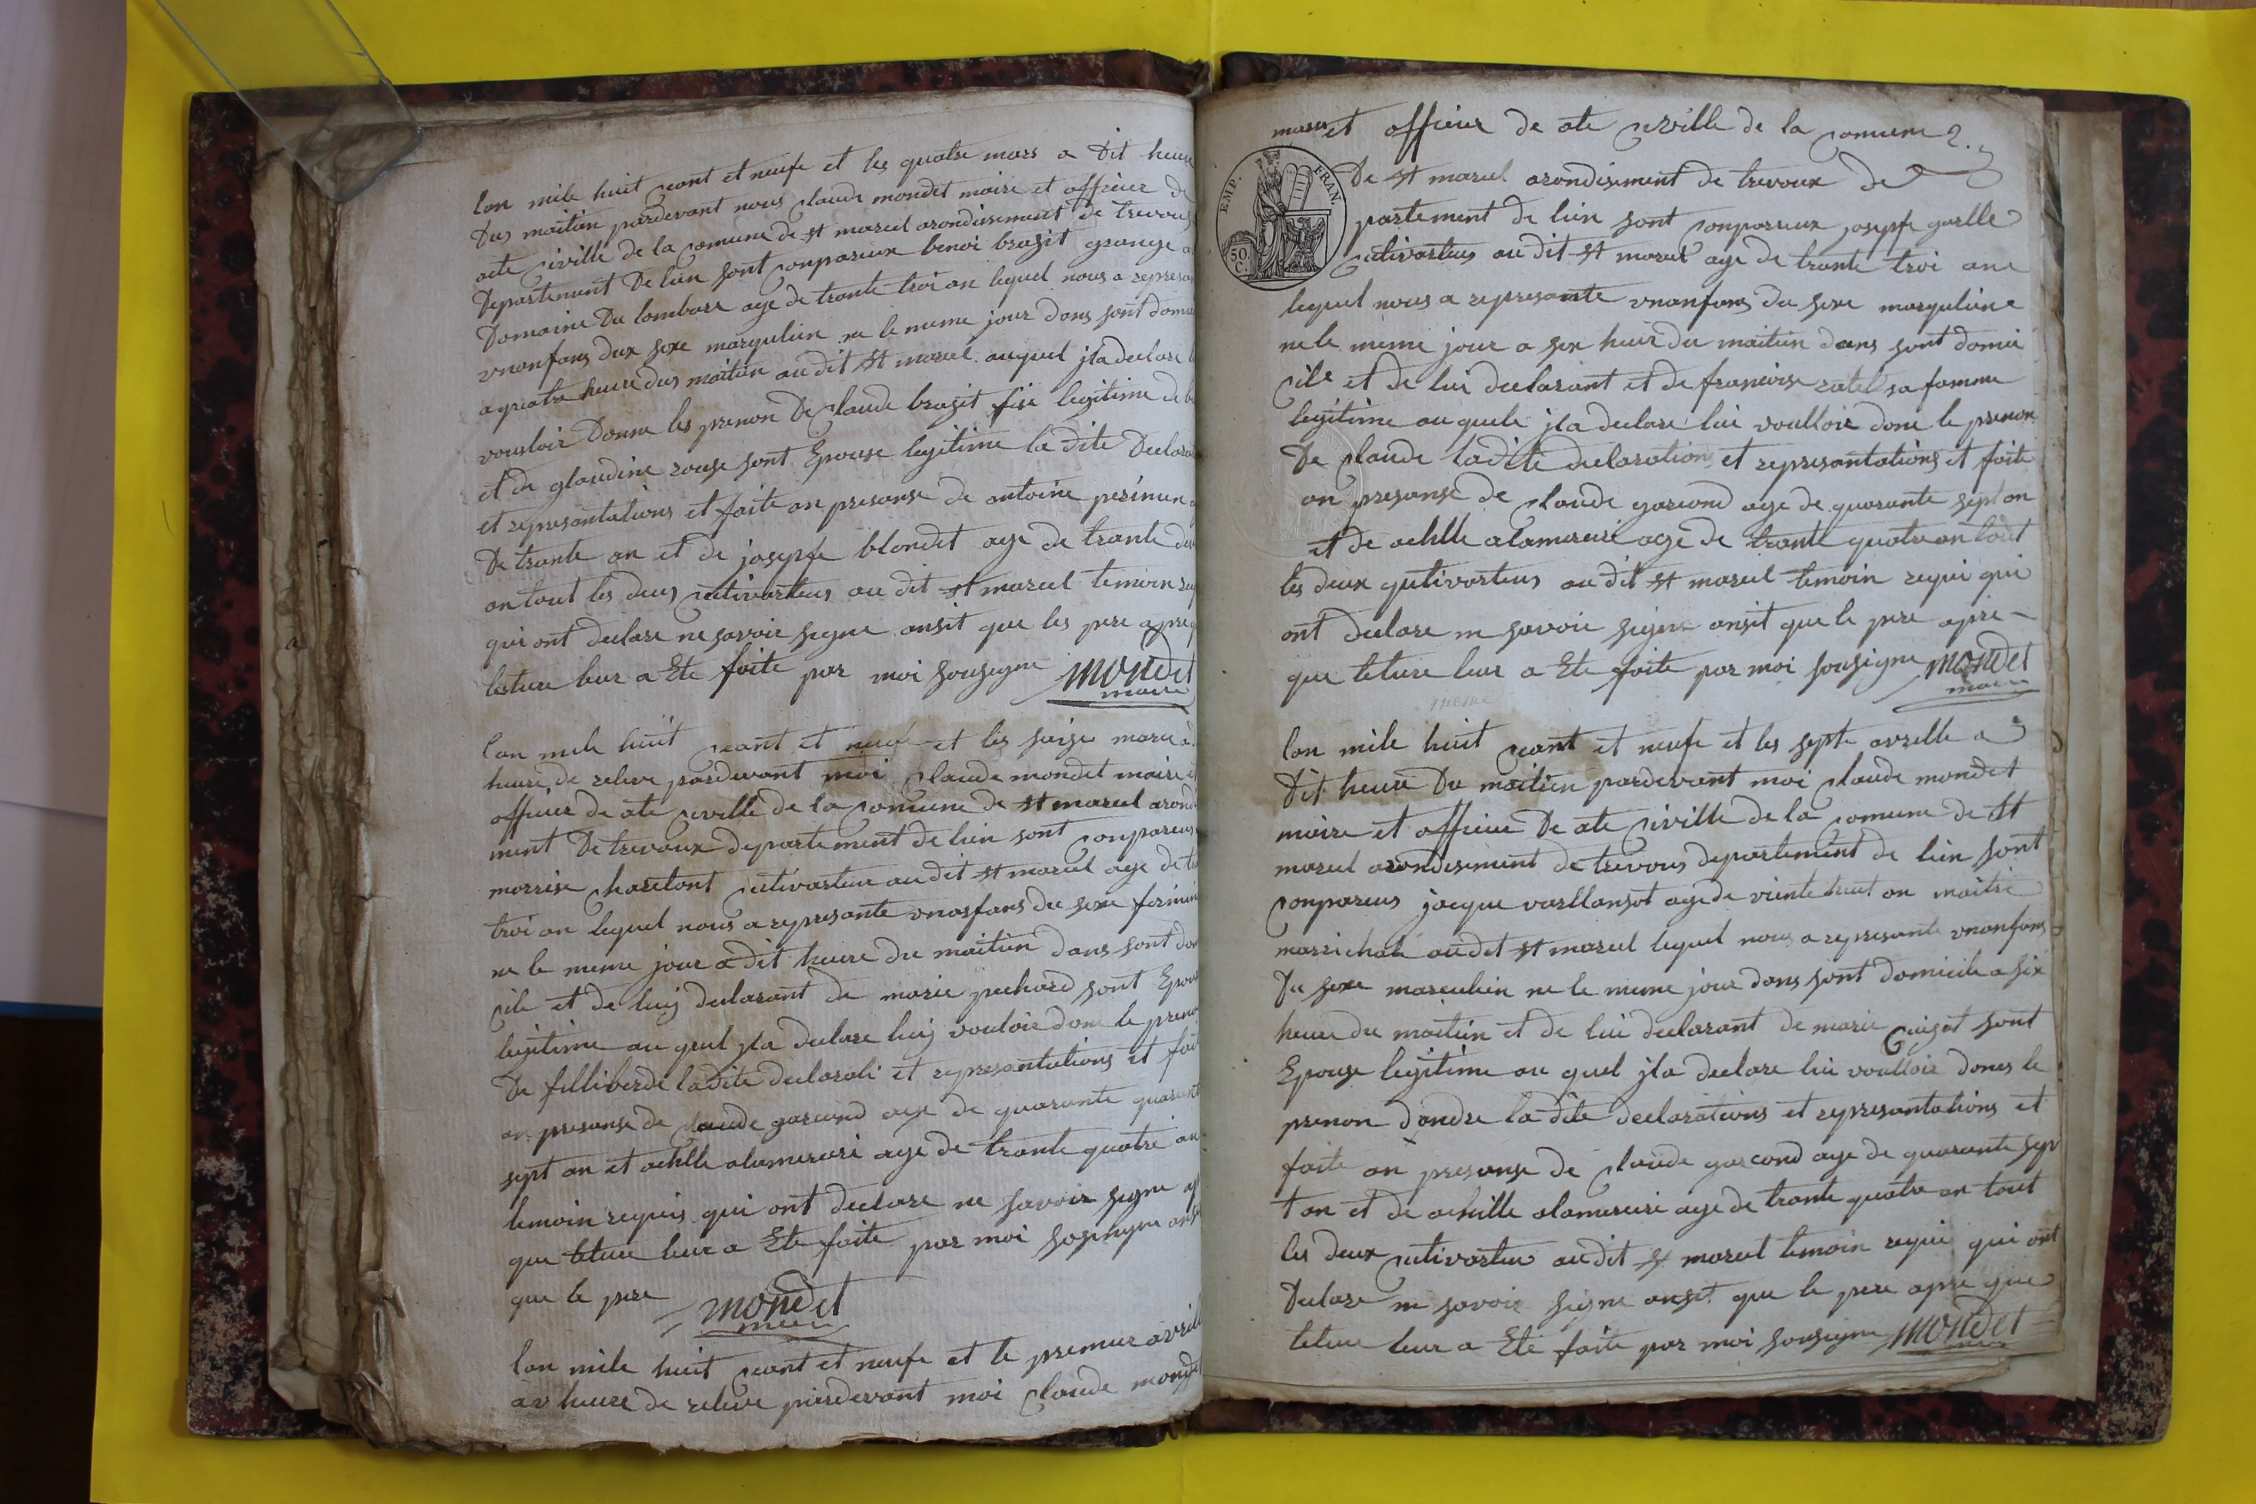 lan mile huit cant et neufe et les quatre mars a dit heure
dus maitin pardevant nous claude mondet maire et officier de
acte civille de la comune de st marcel arondissement de trevous
departement de lain sont conparieux benoi brazit grange
domaine du lombare age de trante troi an lequel nous a represan
vnanfans dux sexe marqulien ne le meme jour dans sont domi
a quatre heure dus maitin au dit st marcel auquel jla declare
vousloir donne les prenon de claude brazit fise legitime de
et de glaudine rouse sont Epouse legitime la dite declara
et represantations et faite an presanse de antoine perimen
de trante an et de josepfe blondet age de trante deu
an tout les deus cutivarteus au dit st marcel temoin req
qui ont declare ne savoir segne ansit que les pere apre q
lecture leur a Ete faite par moi sousigne mondet
maire
lan mile huit cant et neufe et les saize mars a
heure de releve pardevant moi claude mondet maire et
officier de ate civille de la comune de st marcel arondi
ment de trevoux departement de lain sont conpareus
morrise charetont cutivarteur au dit st marcel age de tra
troi an lequel nous a represante vnasfans du sexe feminin
ne le meme jour a dit heure du maitin dans sont dom
cile et de luij declarant de marie pechard sont Epous
legitime au quel jla declare luij vouloir done le preno
de filliberde ladite declarati et represantations et fait
an presanse de claude garcond age de quarante quarant
sept an et achlle alamercire age de trante quatre an
temoin requis qui ont declare ne savoir segne ap
que leture leur a Ete faite par moi sousigne ansi
que le pere mondet
maire
lan mile huit cant et neufe et le premier avrile
av heure de releve pardevant moi claude mondet
maire et officier de ate civille de la comune 2.
EMP. FRAN.
50.
C.
De st marcel arondisement de trevoux de
partement de lain sont conparieux josepfe guelle
cutivarteus au dit st marcel age de trante troi ane
lequel nous a represante vnanfans du sexe marquliene
ne le meme jour a sex heure du maitin dans sont domi
cile et de lui declarant et de francoise ratel sa famme
legitime au quele jla declare lui voulloir done le prenon
De claude ladite declaration et represantations et faite
an presanse de claude garcond age de quarante sept an
et de achlle alamercire age de trante quatre an tout
les deux qutivarteus au dit st marcel temoin requi qui
ont declare ne savoir signe ansit que le pere apre
que leture leur a Ete faite par moi sousigne mondet
maire
lan mile huit cant et neufe et les septe avrelle a
Dit heure Du maitien pardevant moi claude mondet
maire et officier De ate civille de la comune de St
marcel arondisement de trevous departement de lain sont
conpareus jacque varllansot age de viente huit an maitre
marrichale au dit st marcel lequel nous a represante vnanfans
Du sexe marculien ne le meme jour dans sont domicile a six
heure du maitin et de lui declarant de marie Cuizot sont
Epouse legitime au quel jla declare lui voulloir dones le
prenon dandre la dite declarations et represantations et
faite an presanse de claude garcond age de quarante sep
t an et de achille alamercire age de trante quatre an tout
les deux cutivarteu au dit st marcel temoin requi qui ont
Declare ne savoir signe ansit que le pere apre que
leture leur a Ete faite par moi sousigne mondet
maire